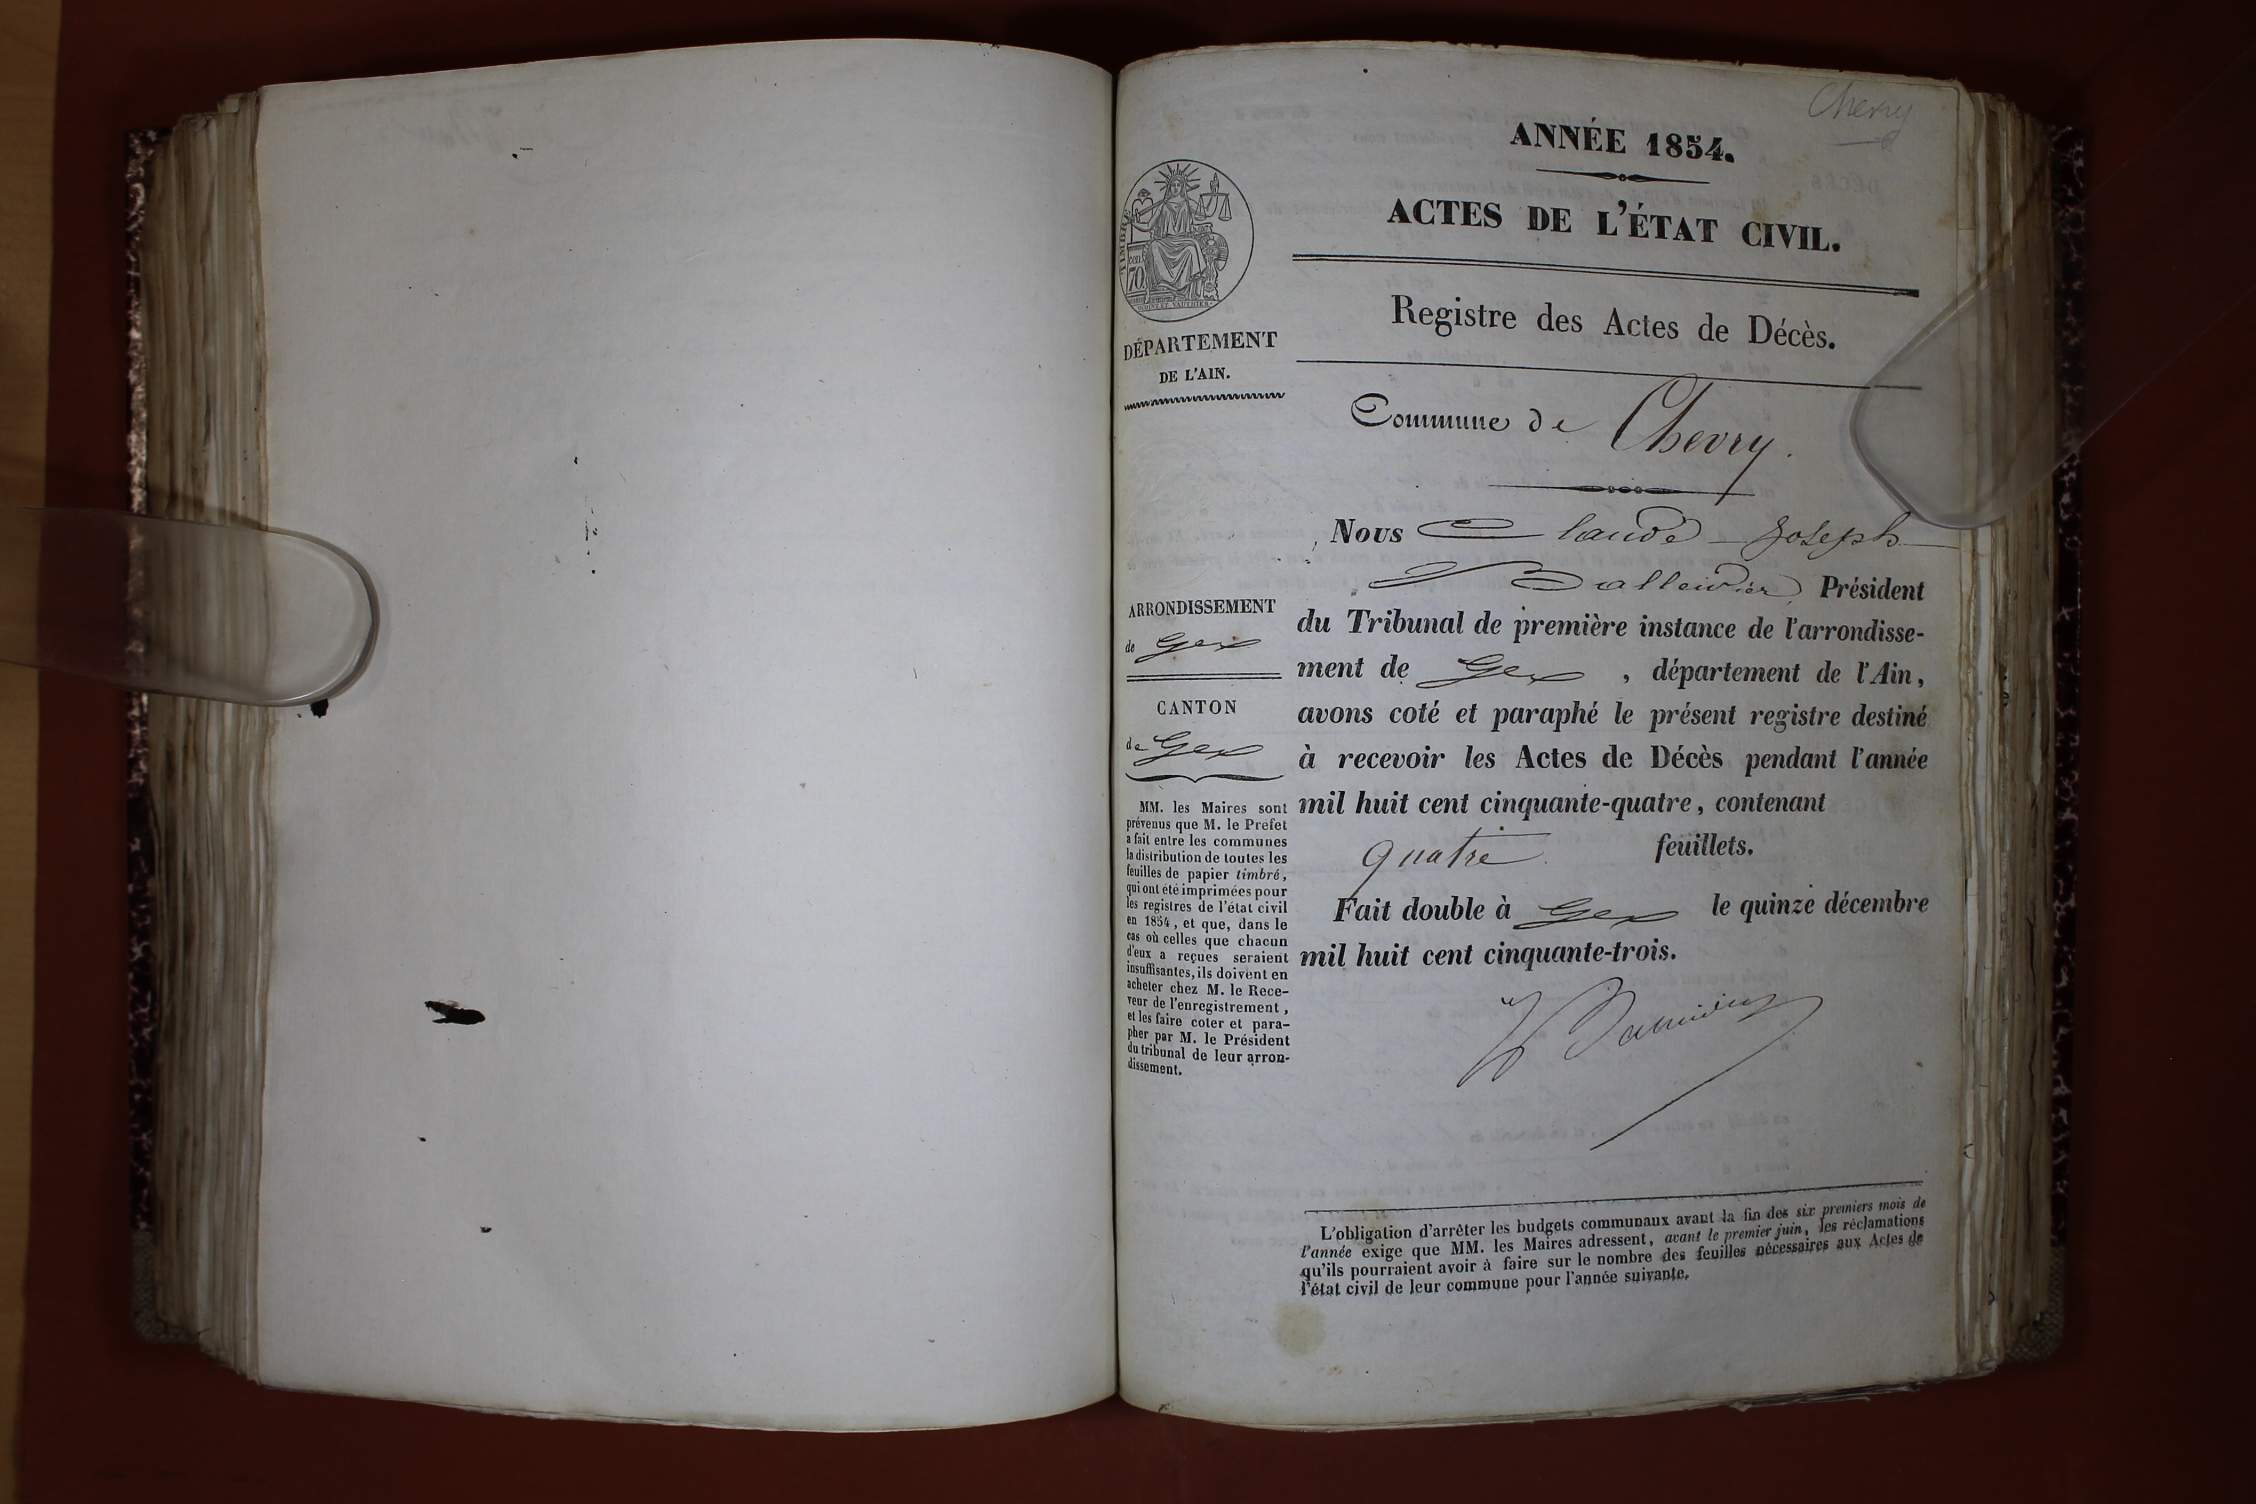 Chevry
ANNÉE 1854.
ACTES DE L'ÉTAT CIVIL.
TIMBRE
70
DÉPARTEMENT
DE L'AIN.
Registre des Actes de Décès.
Commune de Chevry.
ARRONDISSEMENT
de Gex
CANTON
de Gex
MM. les Maires sont
prévenus que M. le Préfet
a fait entre les communes
la distribution de toutes les
feuilles de papier timbré,
qui ont été imprimées pour
les registres de l'état civil
en 1854, et que, dans le
cas où celles que chacun
d'eux a reçues seraient
insuffisantes, ils doivent en
acheter chez M. le Rece-
veur de l'enregistrement,
et les faire coter et para-
pher par M. le Président
du tribunal de leur arron-
dissement.
Nous Claude-Joseph
Balleidier, Président
du Tribunal de première instance de l'arrondisse-
ment de Gex, département de l'Ain,
avons coté et paraphé le présent registre destiné
à recevoir les Actes de Décès pendant l'année
mil huit cent cinquante-quatre, contenant
quatre feuillets.
Fait double à Gex le quinze décembre
mil huit cent cinquante-trois.
L'obligation d'arrêter les budgets communaux avant la fin des six premiers mois de
l'année exige que MM. les Maires adressent, avant le premier juin, les réclamations
qu'ils pourraient avoir à faire sur le nombre des feuilles nécessaires aux Actes de
l'état civil de leur commune pour l'année suivante.